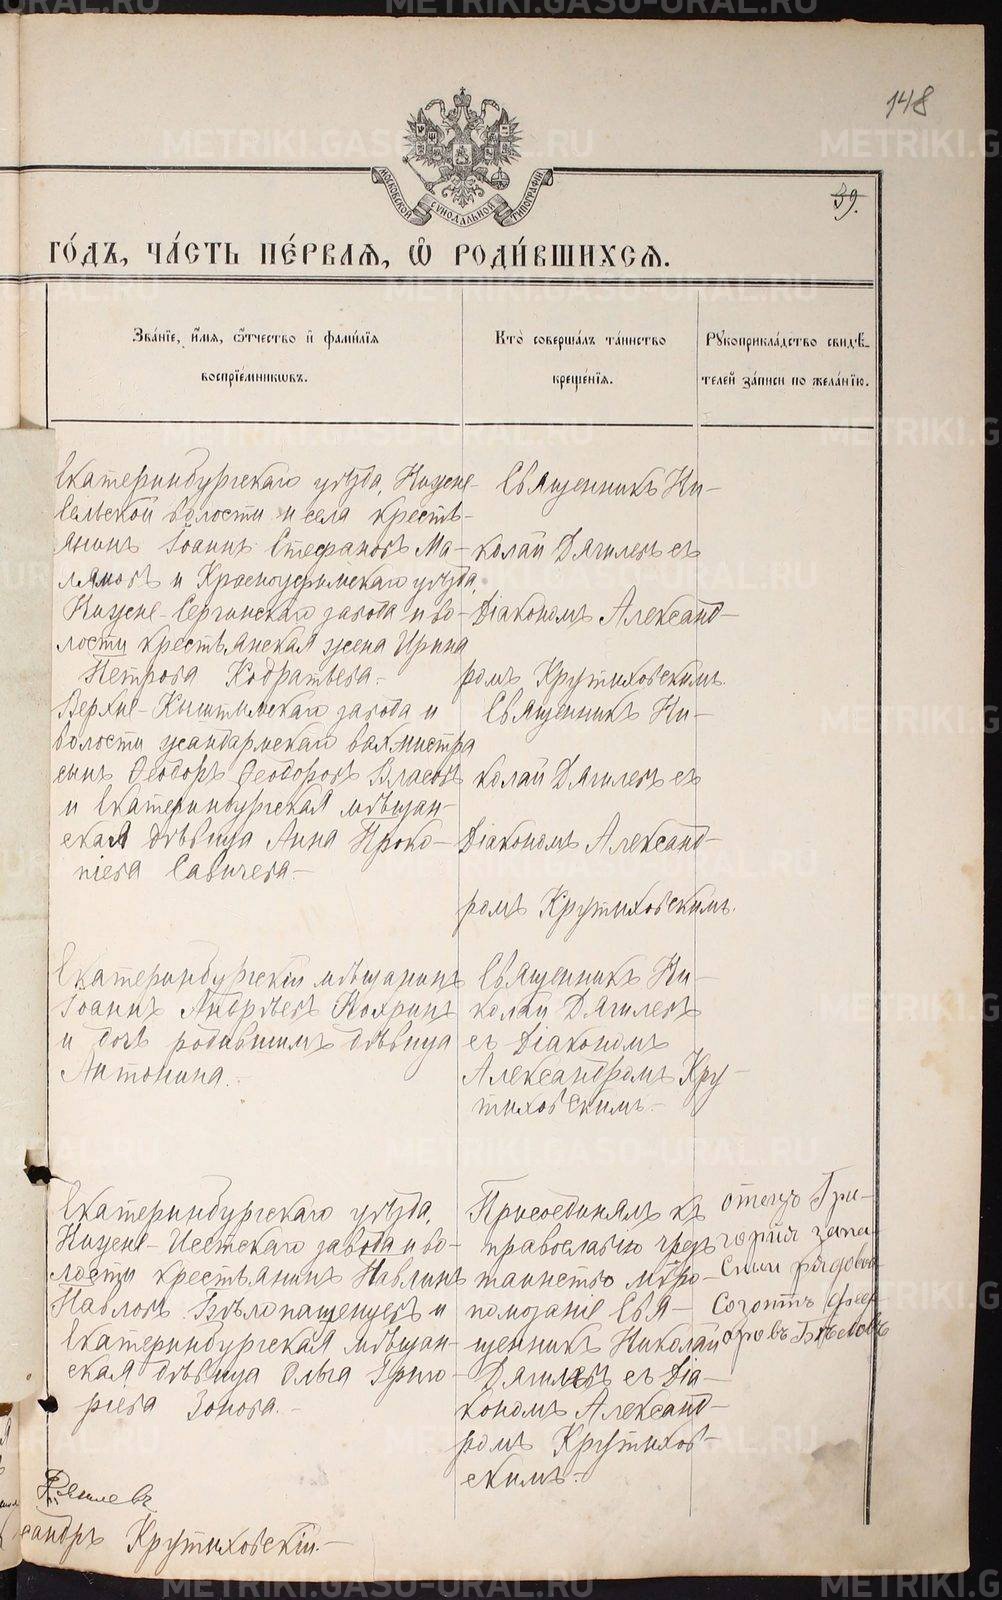 148
39.
МОСКОВСКОЙ СѴНОДАЛЬНОЙ ТИПОГРАФІИ
ГО́ДЪ, ЧА́СТЬ ПЕ́РВАѦ, Ѽ РОДИ́ВШИХСѦ.
Зва́нїе, и҆́мѧ, ѻ҆́тчество и҆ фами́лїѧ
воспрїе́мникѡвъ.
Кто̀ соверша́лъ та́инство
креще́нїѧ.
Рꙋкоприкла́дство свидѣ́-
телей за́писи по жела́нїю.
Екатеринбургскаго уѣзда, Нижне-
Сельской волости и села кресть-
янинъ Іоаннъ Стефановъ Ма-
ламовъ и Красноуфимскаго уѣзда,
Нижне-Сергинскаго завода и во-
лости крестьянская жена Ирина
Петрова Кодратьева-
Священникъ Ни-
колай Дягилевъ съ
Діакономъ Александ-
ромъ Крутиховскимъ.
Верхне-Кыштымскаго завода и
волости жандармскаго вахмистра
сынъ Ѳеодоръ Ѳеодоровъ Власовъ
и Екатеринбургская мѣщан-
ская дѣвица Анна Проко-
піева Савичева.-
Священникъ Ни-
колай Дягилевъ съ
Діакономъ Александ-
ромъ Крутиховскимъ.
Екатеринбургскій мѣщанинъ
Іоаннъ Андреевъ Кокринъ
и дочь родившимъ дѣвица
Антонина.-
Священникъ Ни-
колай Дягилевъ
съ Діакономъ
Александромъ Кру-
тиховскимъ.-
Екатеринбургскаго уѣзда,
Нижне-Исетскаго завода и во-
лости крестьянинъ Павлинъ
Павловъ Бѣлопашенцевъ и
Екатеринбургская мѣщан-
ская дѣвица Ольга Григо-
ріева Зотова.-
Присоединялъ къ
православію чрезъ
таинство мѵро-
помазаніе Свя-
щенникъ Николай
Дягилевъ съ Діа-
кономъ Александ-
ромъ Крутихов-
скимъ.-
отецъ Гри-
горій запа-
сный рядовой
Созонтъ
оровъ
Дягилевъ
сандръ Крутиховскій.-